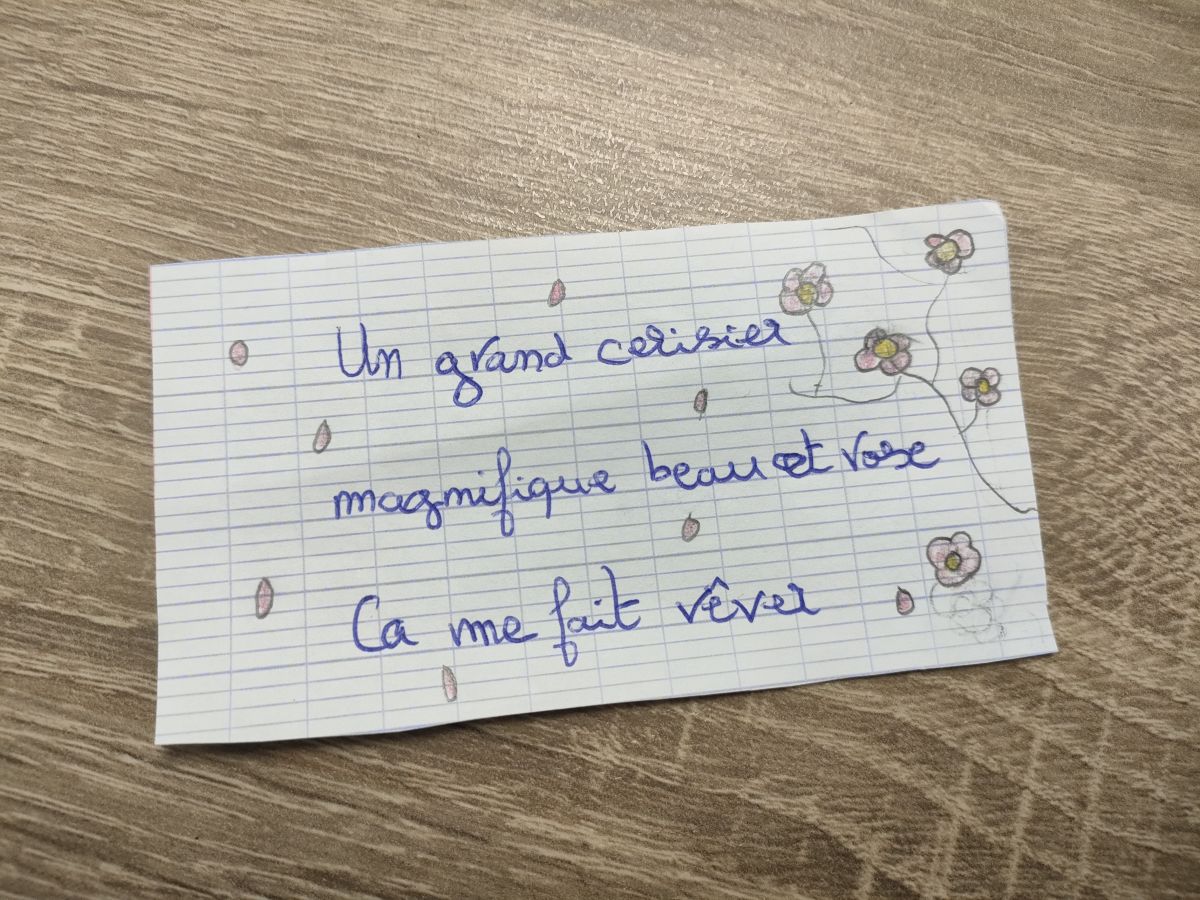 Un grand cerisier
magnifique beau et rose
Ca me fait rêver